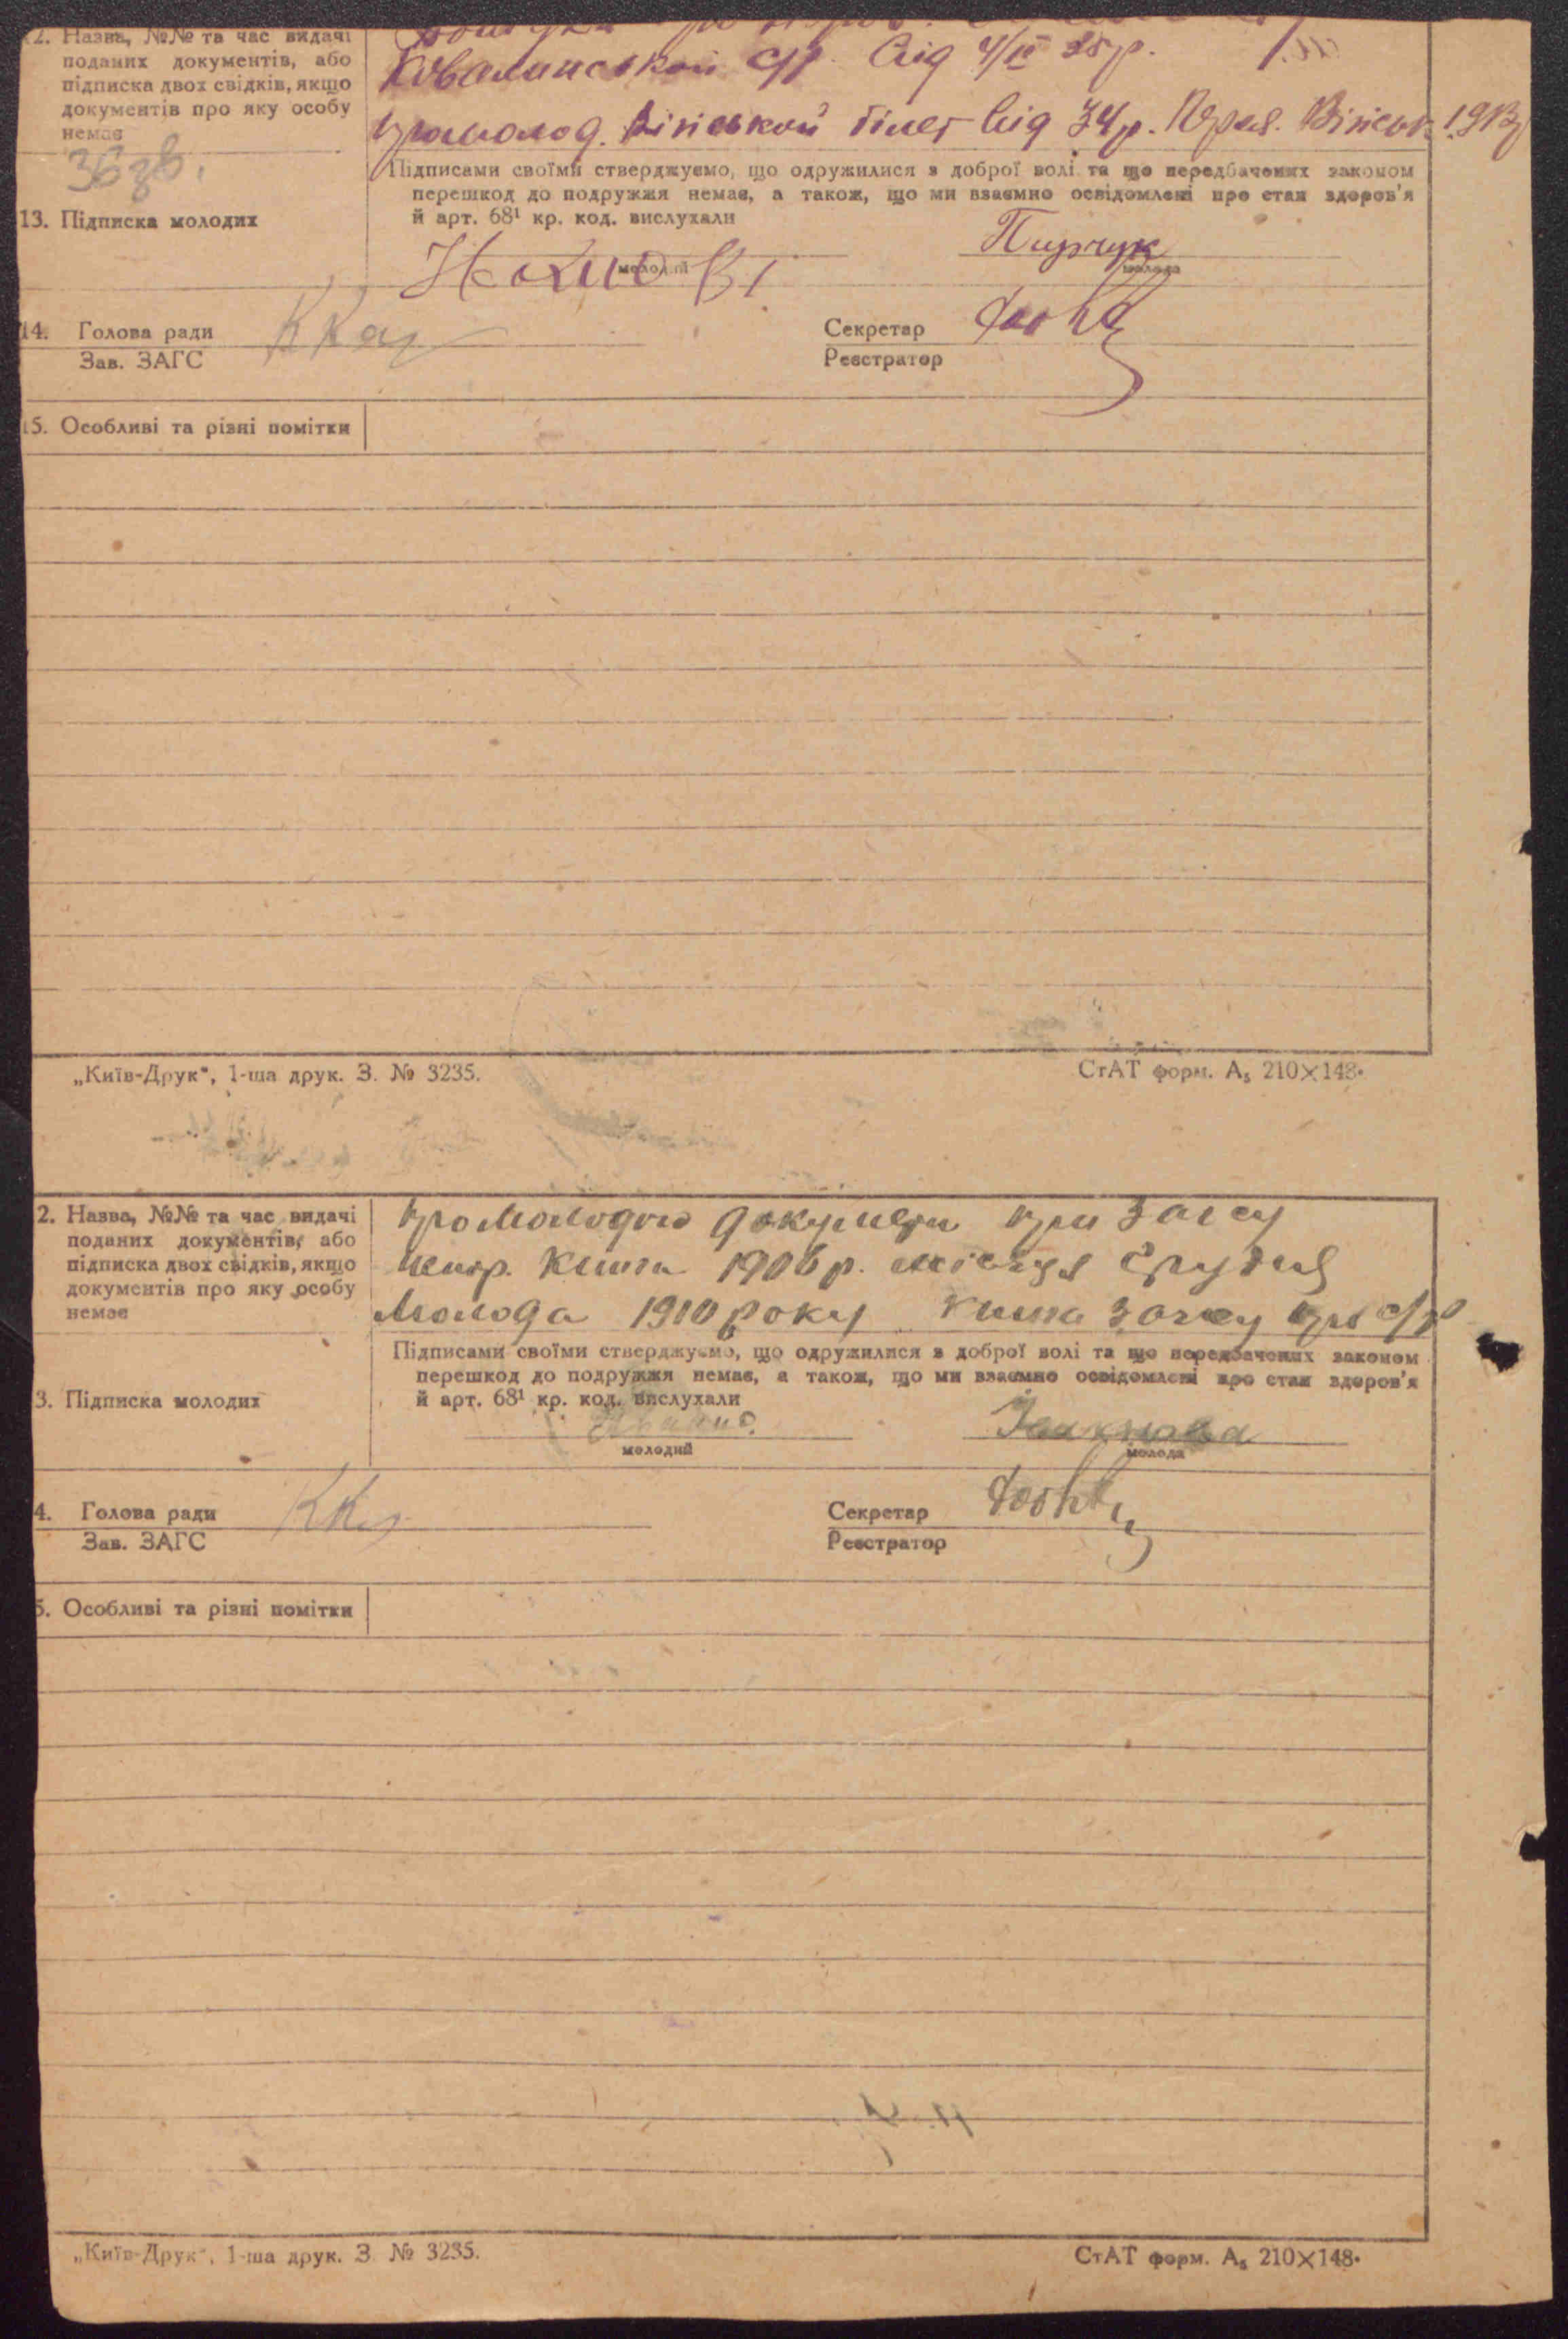 12. Назва, №№ та час видачі
поданих документів, або
підписка двох свідків, якщо
документів про яку особу
немає
Ковалинської с/р. від 4/ІІ 35 р.
промолод. білет від 34 р.
Підписами своїми стверджуємо, що одружилися з доброї волі та що передбачених законом
перешкод до подружжя немає, а також, що ми взаємно освідомлені про стан здоров'я
й арт. 68¹ кр. код. вислухали
13. Підписка молодих
молодий
молода
14. Голова ради
Секретар
Зав. ЗАГС
Реєстратор
15. Особливі та різні помітки
„Київ-Друк“, 1-ша друк. З. № 3235.
СтАТ форм. А₅ 210×148.
2. Назва, №№ та час видачі
поданих документів, або
підписка двох свідків, якщо
документів про яку особу
немає
про молодого документи при загсу
книга 1906 р. місяця грудня
молода 1910 року книга загсу при с/р
Підписами своїми стверджуємо, що одружилися з доброї волі та що передбачених законом
перешкод до подружжя немає, а також, що ми взаємно освідомлені про стан здоров'я
й арт. 68¹ кр. код. вислухали
3. Підписка молодих
молодий
молода
4. Голова ради
Секретар
Зав. ЗАГС
Реєстратор
5. Особливі та різні помітки
„Київ-Друк“, 1-ша друк. З. № 3235.
СтАТ форм. А₅ 210×148.